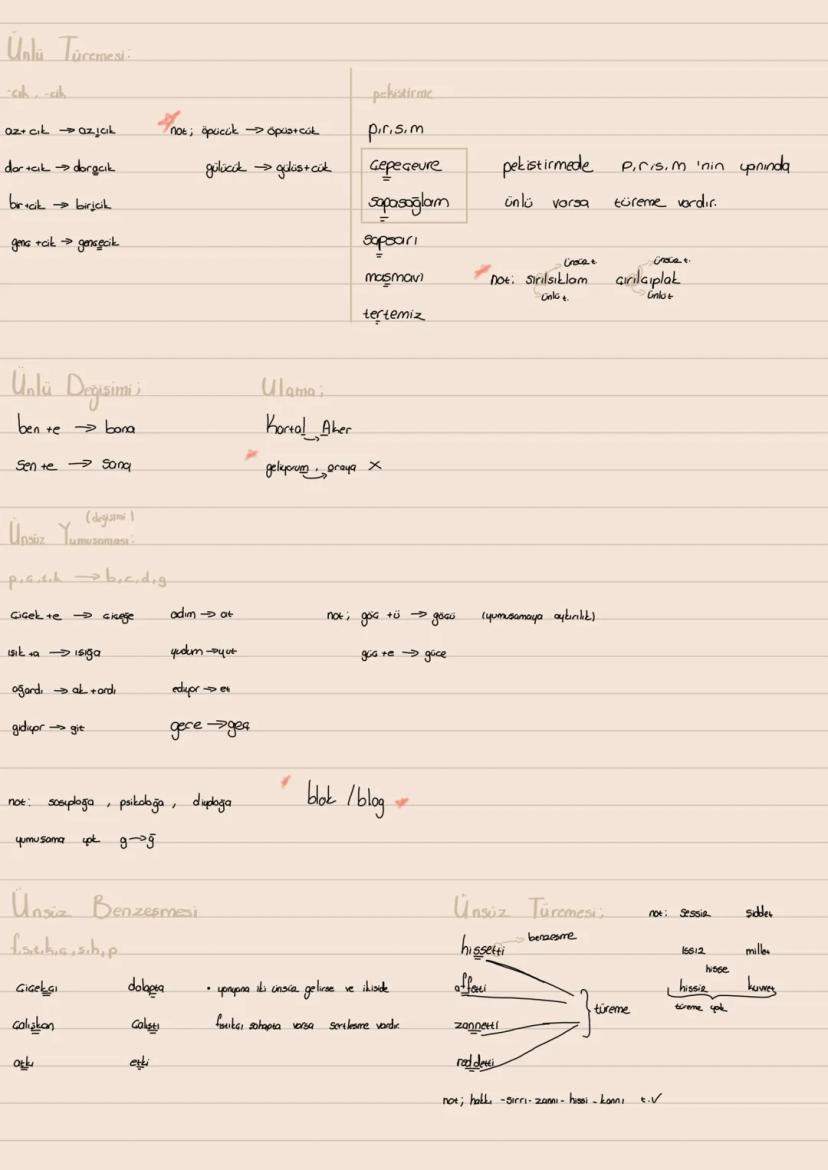 Ünlü Türemesi:
-cık, -cik
az+cık → azıcık
dar+cık → daracık
bir+cik → biricik
genç+cik → gencecik
not; öpücük → öpüş+cük
gülücük → gülüş+cük
pekiştirme
p,r,s,m
çepeçevre
sapasağlam
sapsarı
masmavi
tertemiz
pekiştirmede p,r,s,m 'nin yanında
ünlü varsa türeme vardır.
ünsüz t. ünsüz t.
not: sırılsıklam çırılçıplak
ünlü t. ünlü t
Ünlü Değişimi;
ben +e → bana
sen +e → sana
Ulama;
Kartal Aker
geliyorum, oraya X
(değişimi)
Ünsüz Yumuşaması:
p,ç,t,k → b,c,d,g
çiçek +e → çiçeğe
ışık +a → ışığa
ağardı → ak+ardı
gidiyor → git
adım → at
yudum → yut
ediyor → et
gece → geç
not; göç +ü → göçü (yumuşamaya aykırılık)
güç +e → güce
not: sosyoloğa, psikoloğa, diyaloğa
yumuşama yok g→ğ
blok /blog
Ünsüz Benzeşmesi
f,s,t,k,ç,ş,h,p
çiçekçi
çalışkan
atkı
dolapta
çalıştı
etki
• yanyana iki ünsüz gelirse ve ikiside
fıstıkçı şahapta varsa sertleşme vardır.
Ünsüz Türemesi;
hissetti → benzeşme
affetti
zannetti
reddetti
türeme
not: sessiz şiddet
ıssız millet
hisse
hissiz kuvvet
türeme yok
not; hakkı -sırrı- zannı - hissi - kannı t.✓